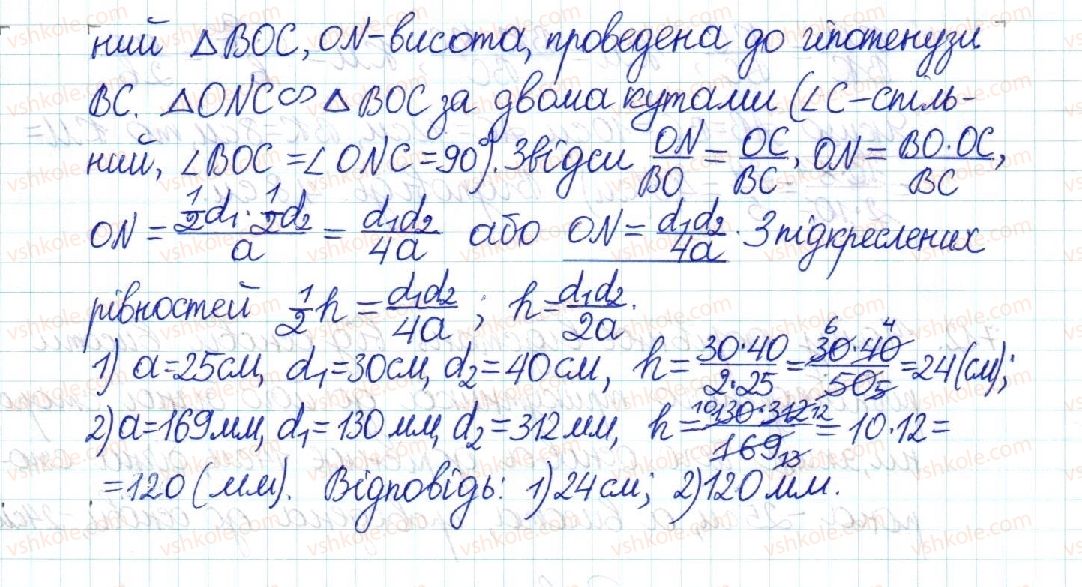 ний △BOC, ON-висота, проведена до гіпотенузи
BC. △ONC∽△BOC за двома кутами (∠C-спіль-
ний, ∠BOC=∠ONC=90°). Звідси ON/BO = OC/BC, ON = BO·OC/BC,
ON = (1/2 d₁ · 1/2 d₂)/a = d₁d₂/4a або ON = d₁d₂/4a. З підкреслених
рівностей 1/2 h = d₁d₂/4a; h = d₁d₂/2a.
1) a=25см, d₁=30см, d₂=40см, h = 30·40/2·25 = 30·40/50 = 24(см);
2) a=169мм, d₁=130мм, d₂=312мм, h = 130·312/169 = 10·12=
=120(мм). Відповідь: 1) 24см; 2) 120мм.